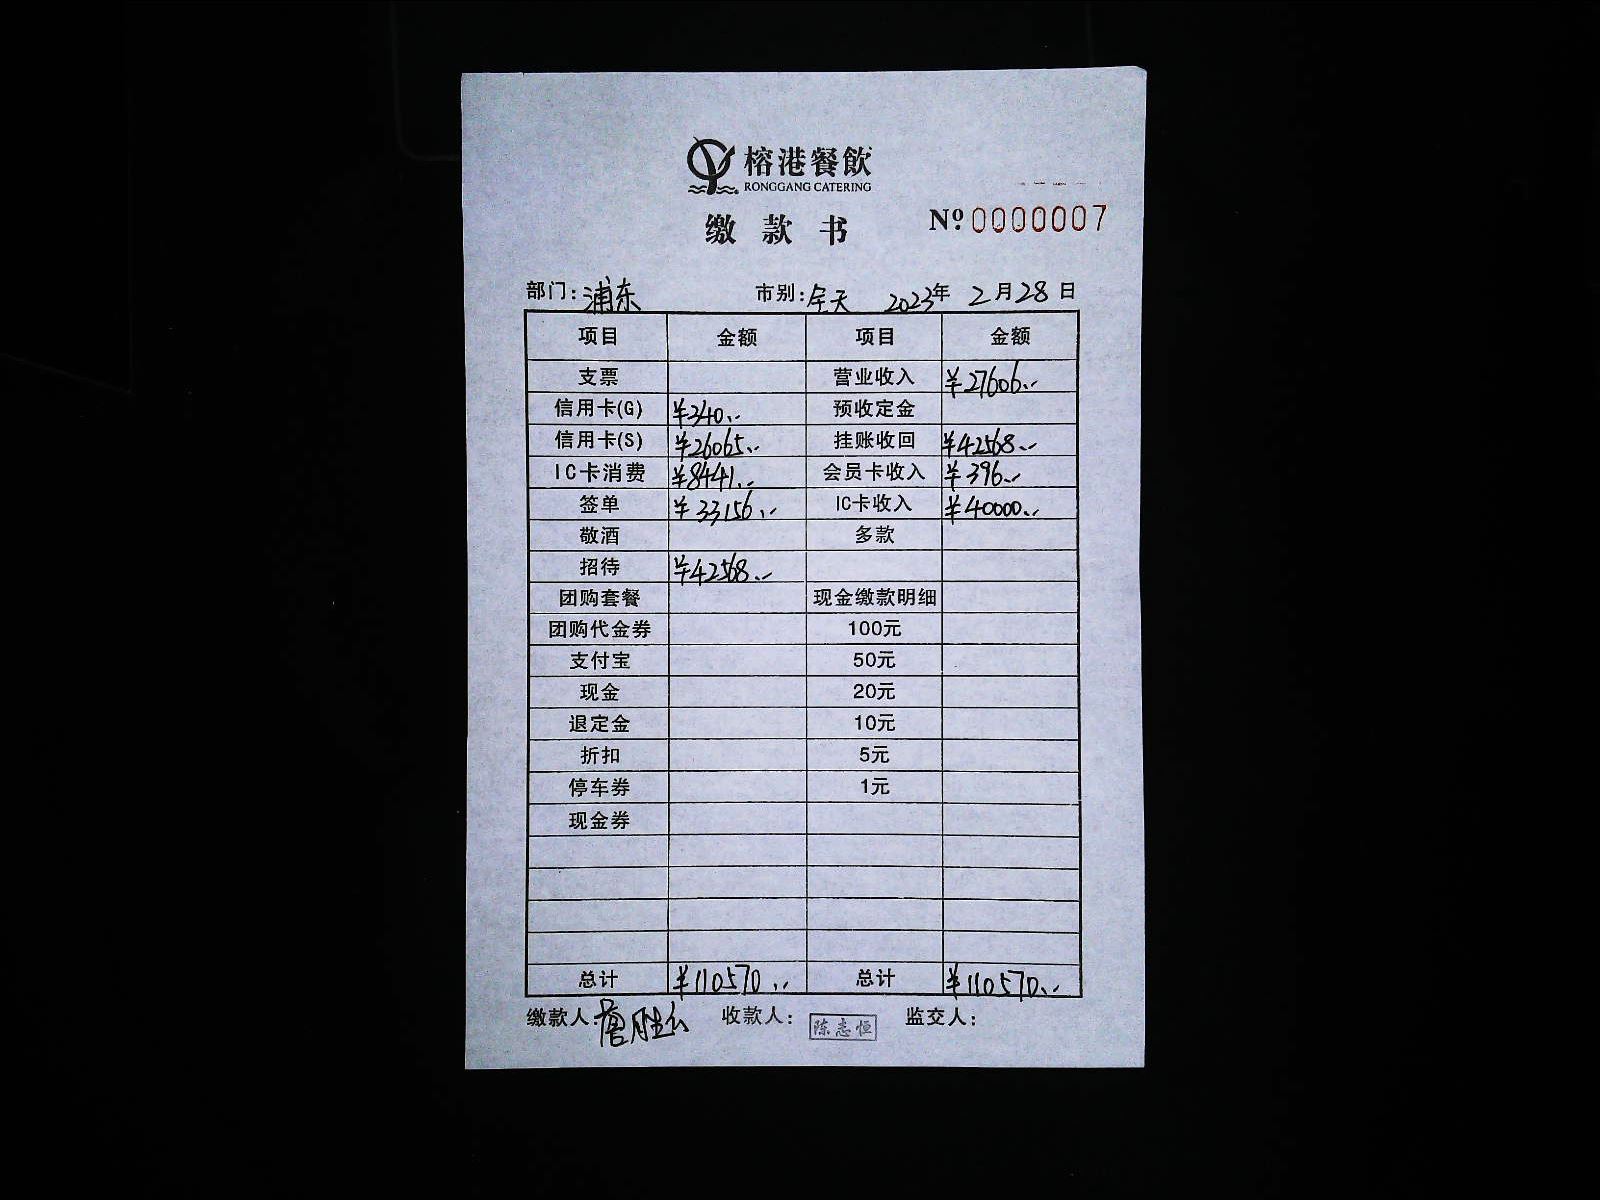 榕港餐飲
RONGGANG CATERING
缴款书 Nº 0000007
部门: 浦东 市别: 全天 2023年 2月28日
项目 金额 项目 金额
支票 营业收入 ¥27606.-
信用卡(G) ¥340.- 预收定金
信用卡(S) ¥26065.- 挂账收回 ¥42568.-
IC卡消费 ¥8441.- 会员卡收入 ¥396.-
签单 ¥33156.- IC卡收入 ¥40000.-
敬酒 多款
招待 ¥42568.-
团购套餐 现金缴款明细
团购代金券 100元
支付宝 50元
现金 20元
退定金 10元
折扣 5元
停车券 1元
现金券
总计 ¥110570.- 总计 ¥110570.-
缴款人: 收款人: 陈志恒 监交人: